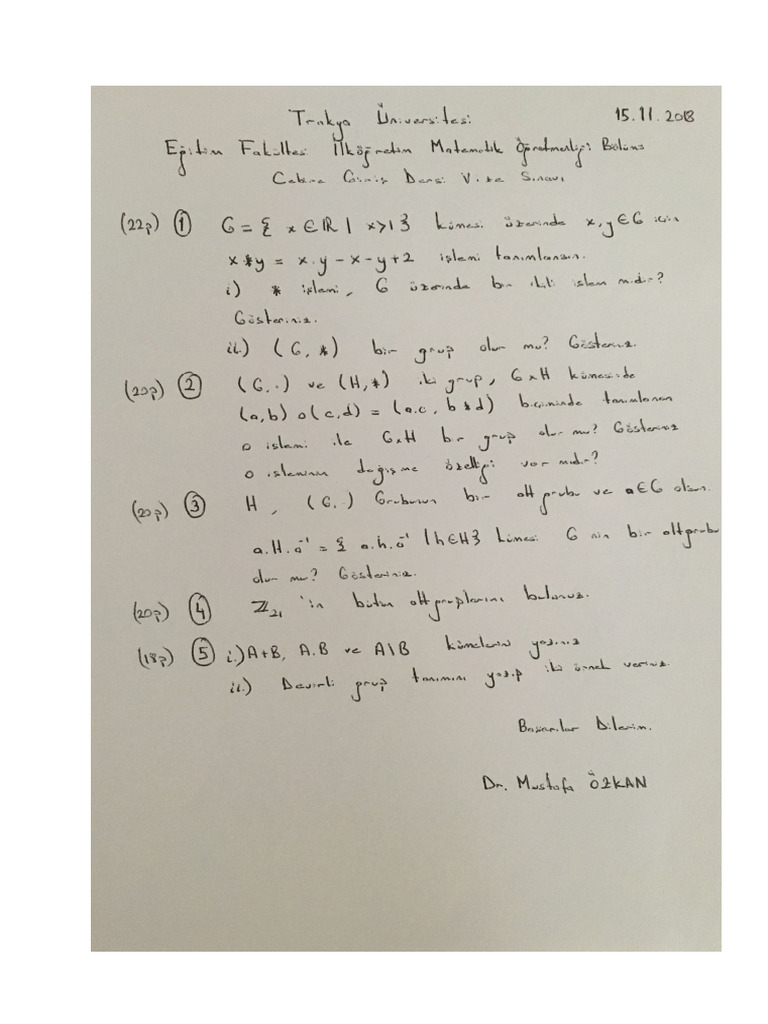 Trakya Üniversitesi 15.11.2018
Eğitim Fakültesi İlköğretim Matematik Öğretmenliği Bölümü
Cebire Giriş Dersi Vize Sınavı
(22p) ① G = { x ∈ ℝ | x>1 } kümesi üzerinde x, y ∈ G için
x * y = x.y - x - y + 2 işlemi tanımlansın.
i) * işlemi, G üzerinde bir ikili işlem midir?
Gösteriniz.
ii.) (G, *) bir grup olur mu? Gösteriniz.
(20p) ② (G, .) ve (H, *) iki grup, G x H kümesinde
(a,b) o (c,d) = (a.c, b * d) biçiminde tanımlanan
o işlemi ile GxH bir grup olur mu? Gösteriniz
o işleminin değişme özelliği var mıdır?
(20p) ③ H, (G, .) Grubunun bir alt grubu ve a ∈ G olsun.
a.H.a⁻¹ = { a.h.a⁻¹ | h ∈ H } kümesi G nin bir altgrubu
olur mu? Gösteriniz.
(20p) ④ ℤ₂₁ 'in bütün altgruplarını bulunuz.
(18p) ⑤ i.) A+B, A.B ve A\B kümelerini yazınız
ii.) Devirli grup tanımını yazıp iki örnek veriniz.
Başarılar Dilerim.
Dr. Mustafa ÖZKAN